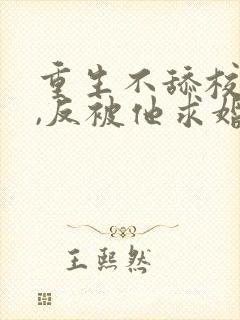 重生不舔校
,反被他求婚
王熙然